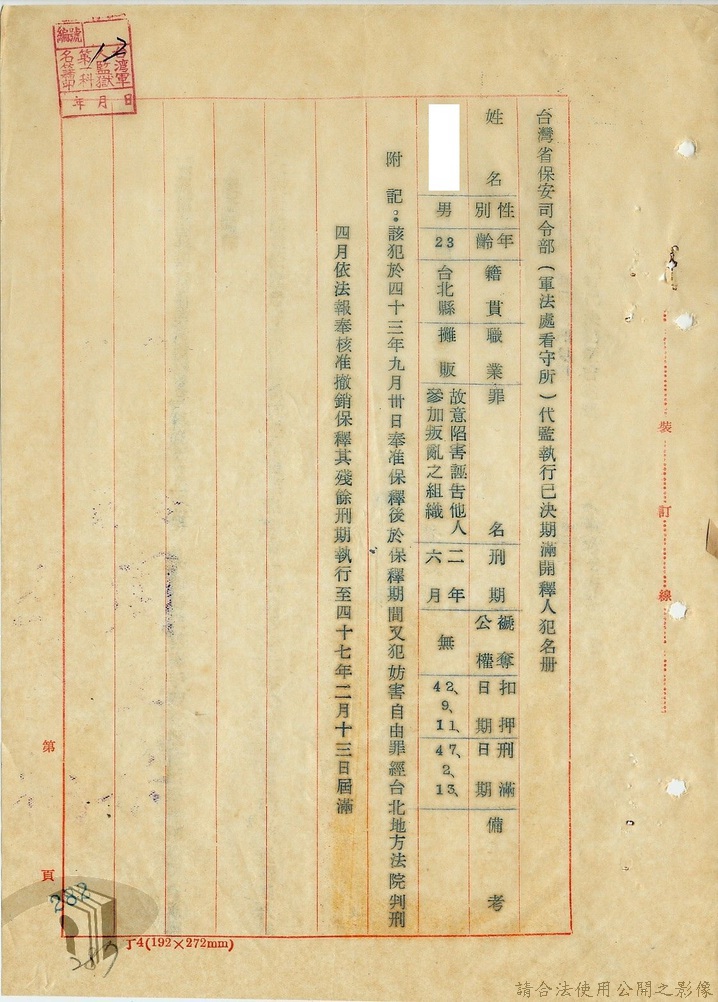 台灣省保安司令部(軍法處看守所)代監執行已決期滿開釋人犯名册
姓名
性別
年齡
籍貫
職業
罪名
刑期
褫奪公權
扣押日期
刑滿日期
備考
男
23
台北縣
攤販
故意陷害誣告他人
參加叛亂之組織
二年
六月
無
42、9、11、
47、2、13、
附記：該犯於四十三年九月卅日奉准保釋後於保釋期間又犯妨害自由罪經台北地方法院判刑
四月依法報奉核准撤銷保釋其殘餘刑期執行至四十七年二月十三日屆滿
裝訂線
台灣軍
人監獄
第一科
名籍卯
編號
年月日
第頁
282
287
丁4(192×272mm)
請合法使用公開之影像